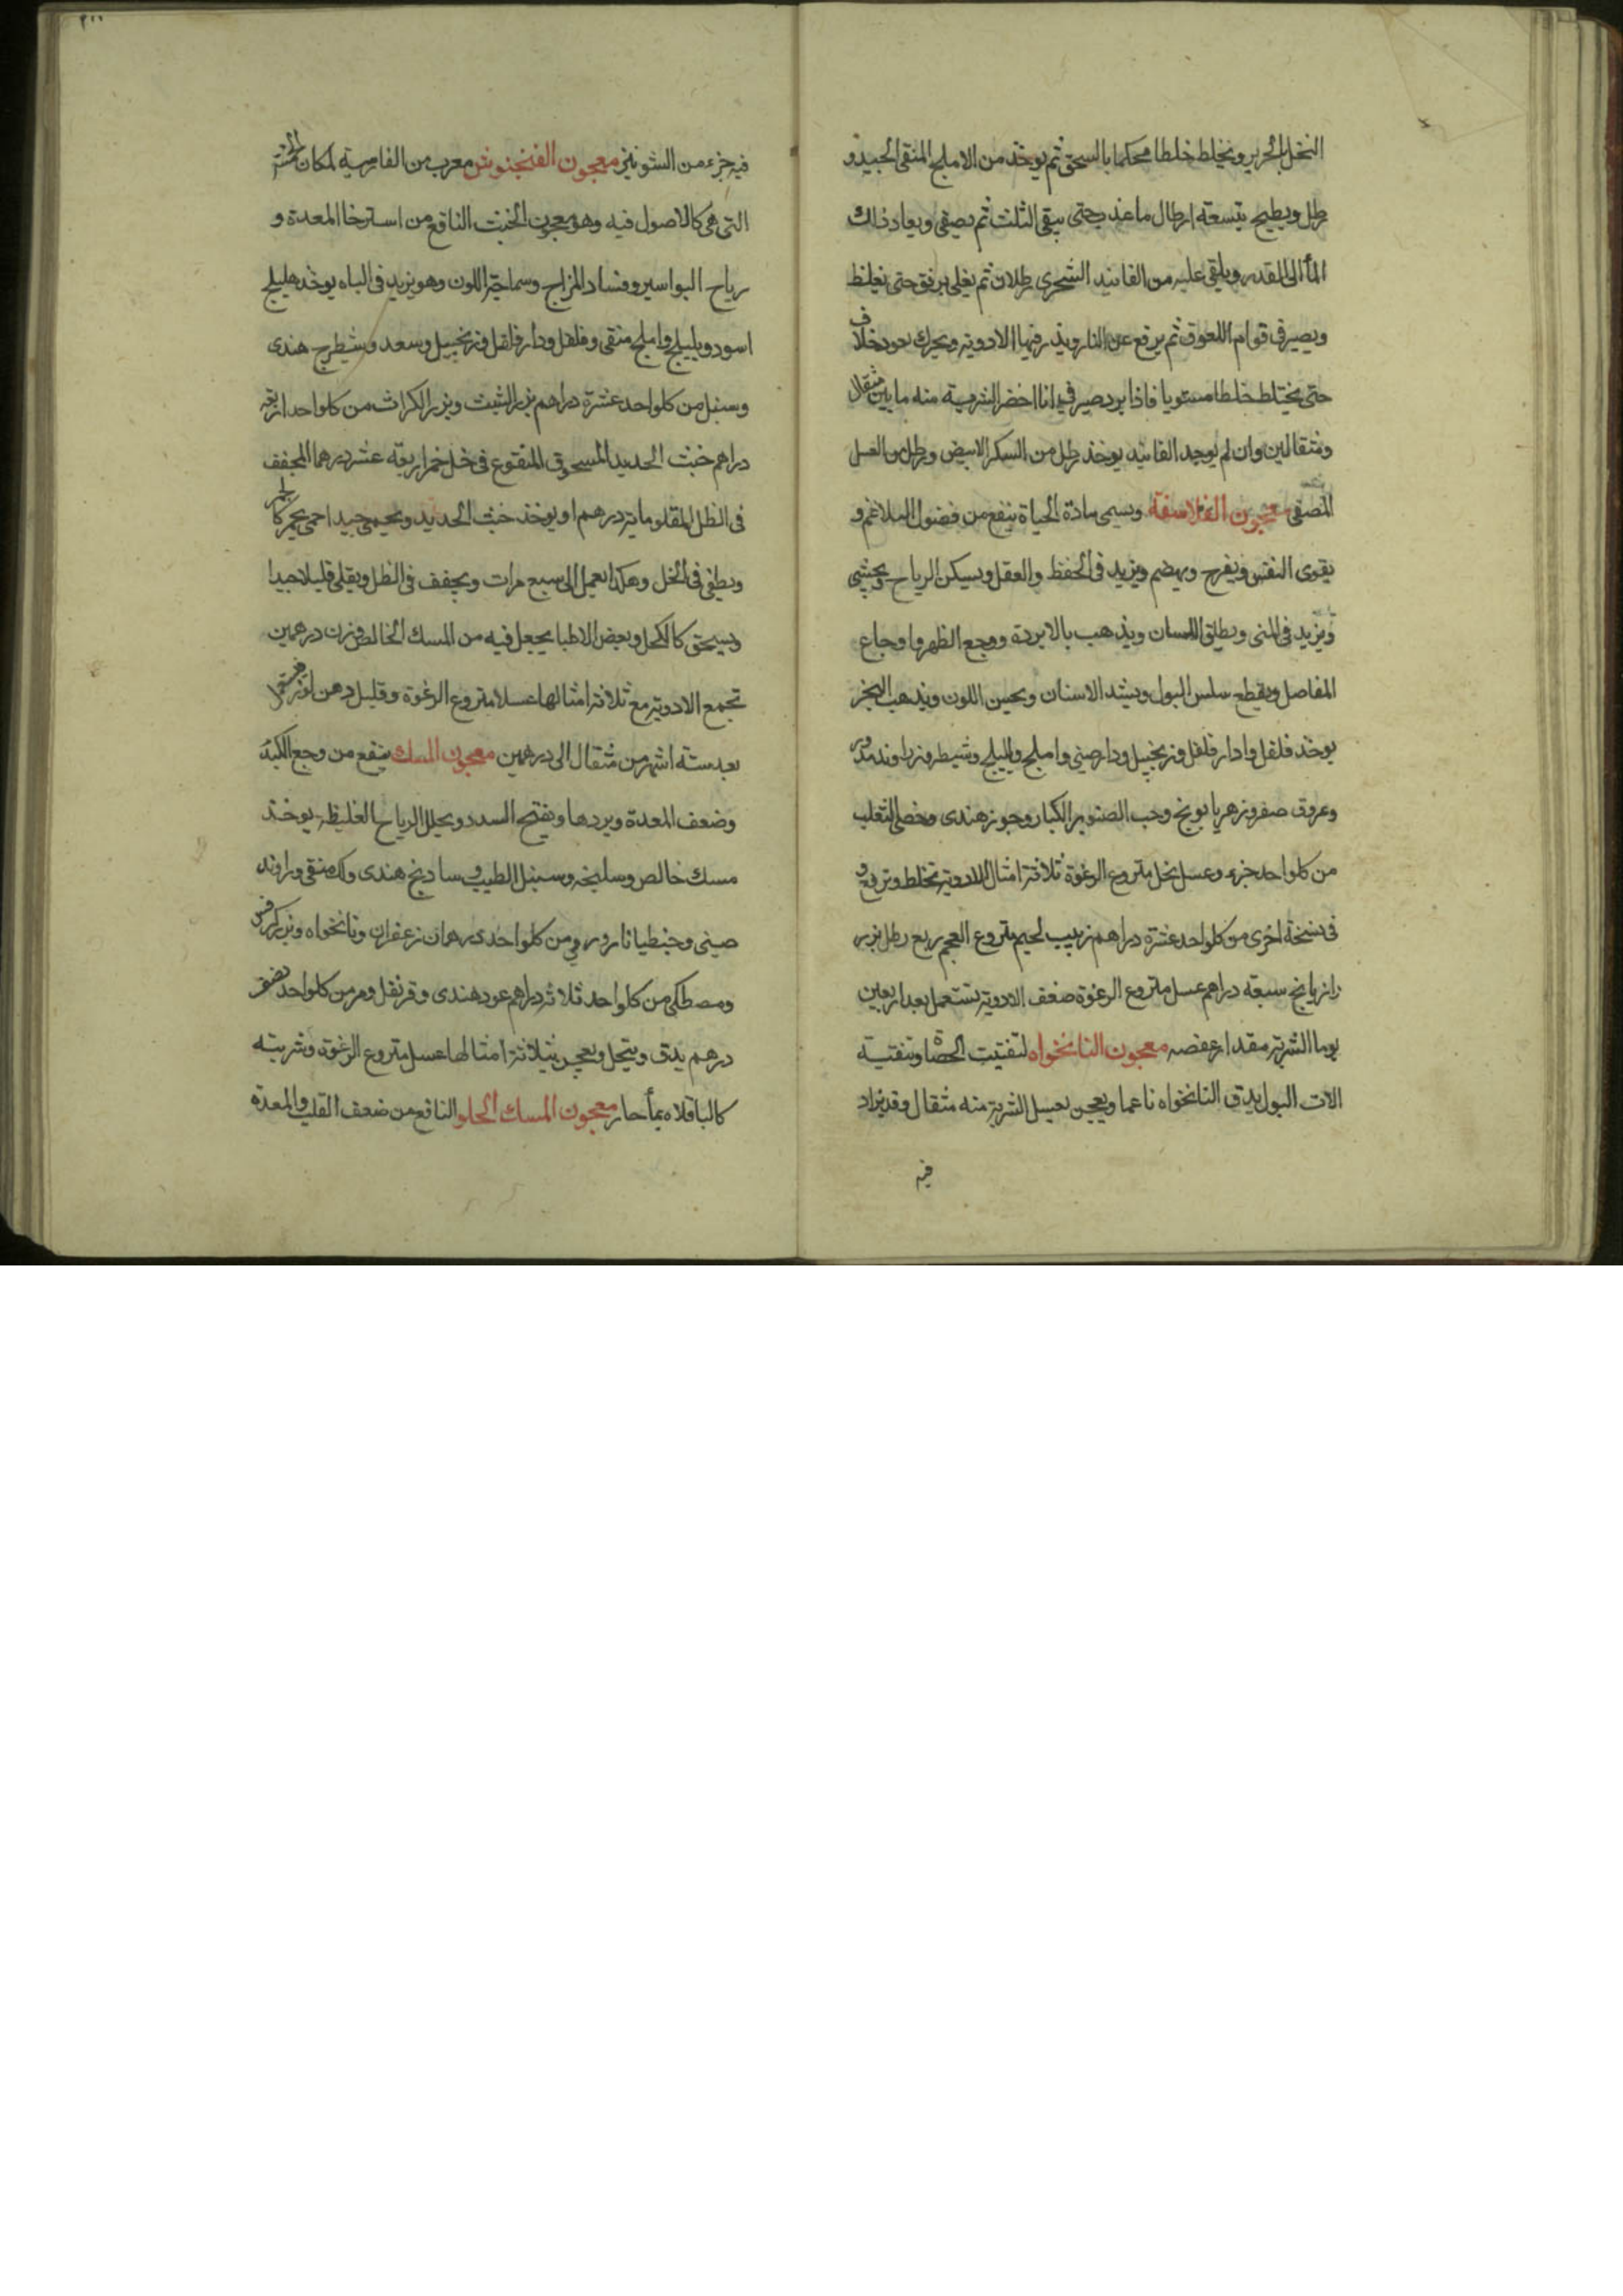 النخل بالحرير ويخلط خلطا محكما بالسحق ثم يوخذ من الاملج المنقى الجيد و
رطل ويطبخ بتسعة ارطال ما عذب حتى يبقى الثلث ثم يصفى ويعاد ذلك
المأ الى القدر ويلقى عليه من الفانيد الشجرى رطلان ثم يغلى برفق حتى يغلظ
ويصير فى قوام اللعوق ثم يرفع عن النار ويذر فيها الادوية ويحرك بعود خلاف
حتى يختلط خلطا مستويا فاذا برد صير فى انا اخضر الشربة منه ما بين مثقال
ومثقالين وان لم يوجد الفانيد يوخذ رطل من السكر الابيض ورطل من العسل
المصفى معجون الفلاسفة ويسمى مادة الحياة ينفع من فضول البلاغم و
يقوى النفس ويفرح ويهضم ويزيد فى الحفظ والعقل ويسكن الرياح ويجشى
ويزيد فى المنى ويطلق اللسان ويذهب بالابردة ووجع الظهر واوجاع
المفاصل ويقطع سلس البول ويشد الاسنان ويحسن اللون ويذهب البخر
يوخذ فلفل وادار فلفل وزنجبيل ودارصينى واملج وبليلج وشيطرج وزراوند مدور
وعروق صفر وزهر بابونج وحب الصنوبر الكبار وجوز هندى وخصى الثعلب
من كلواحد جزء وعسل نحل منزوع الرغوة ثلاثة امثال الادوية تخلط وترفع و
فى نسخة اخرى من كلواحد عشرة دراهم زبيب لحيم منزوع العجم ربع رطل بزر
رازيانج سبعة دراهم عسل منزوع الرغوة ضعف الادوية تستعمل بعد اربعين
يوما الشربة مقدار عفصه معجون النانخواه لتفتيت الحصاة وتنقية
الات البول يدق النانخواه ناعما ويعجن بعسل الشربة منه مثقال وقد يزاد
فيه
فيه جزء من الشونيز معجون الفنجنوش معرب من الفارسية لمكان الخمسة
التى هى كالاصول فيه وهو معجون الخبث النافع من استرخا المعدة و
رياح البواسير وفساد المزاج وسماجة اللون وهو يزيد فى الباه يوخذ هليلج
اسود وبليلج واملج منقى وفلفل ودار فلفل وزنجبيل وسعد وشيطرج هندى
وسنبل من كلواحد عشرة دراهم بزر الشبث وبزر الكراث من كلواحد اربعة
دراهم خبث الحديد المسحوق المنقوع فى خل خمر اربعة عشر درهما المجفف
فى الظل المقلو ماية درهم او يوخذ خبث الحديد ويحمى جيدا حمى يحمر كالجمر
ويطفى فى الخل وهكذا يعمل الى سبع مرات ويجفف فى الظل ويقلى قليلا جيدا
ويسحق كالكحل وبعض الاطبا يجعل فيه من المسك الخالص وزن درهمين
تجمع الادوية مع ثلاثة امثالها عسلا منزوع الرغوة وقليل دهن لوز يستعمل
بعد ستة اشهر من مثقال الى درهمين معجون المسك ينفع من وجع الكبد
وضعف المعدة وبردها ويفتح السدد ويحلل الرياح الغليظة يوخذ
مسك خالص وسليخه وسنبل الطيب وسادنج هندى ولك منقى وراوند
صينى وجنطيانا رومى من كلواحد درهمان زعفران ونانخواه وبزر كرفس
ومصطكى من كلواحد ثلاثة دراهم عود هندى وقرنفل ومر من كلواحد نصف
درهم يدق وينخل ويعجن بثلاثة امثالها عسل منزوع الرغوة وشربته
كالباقلاه بمأ حار معجون المسك الحلو النافع من ضعف القلب والمعدة